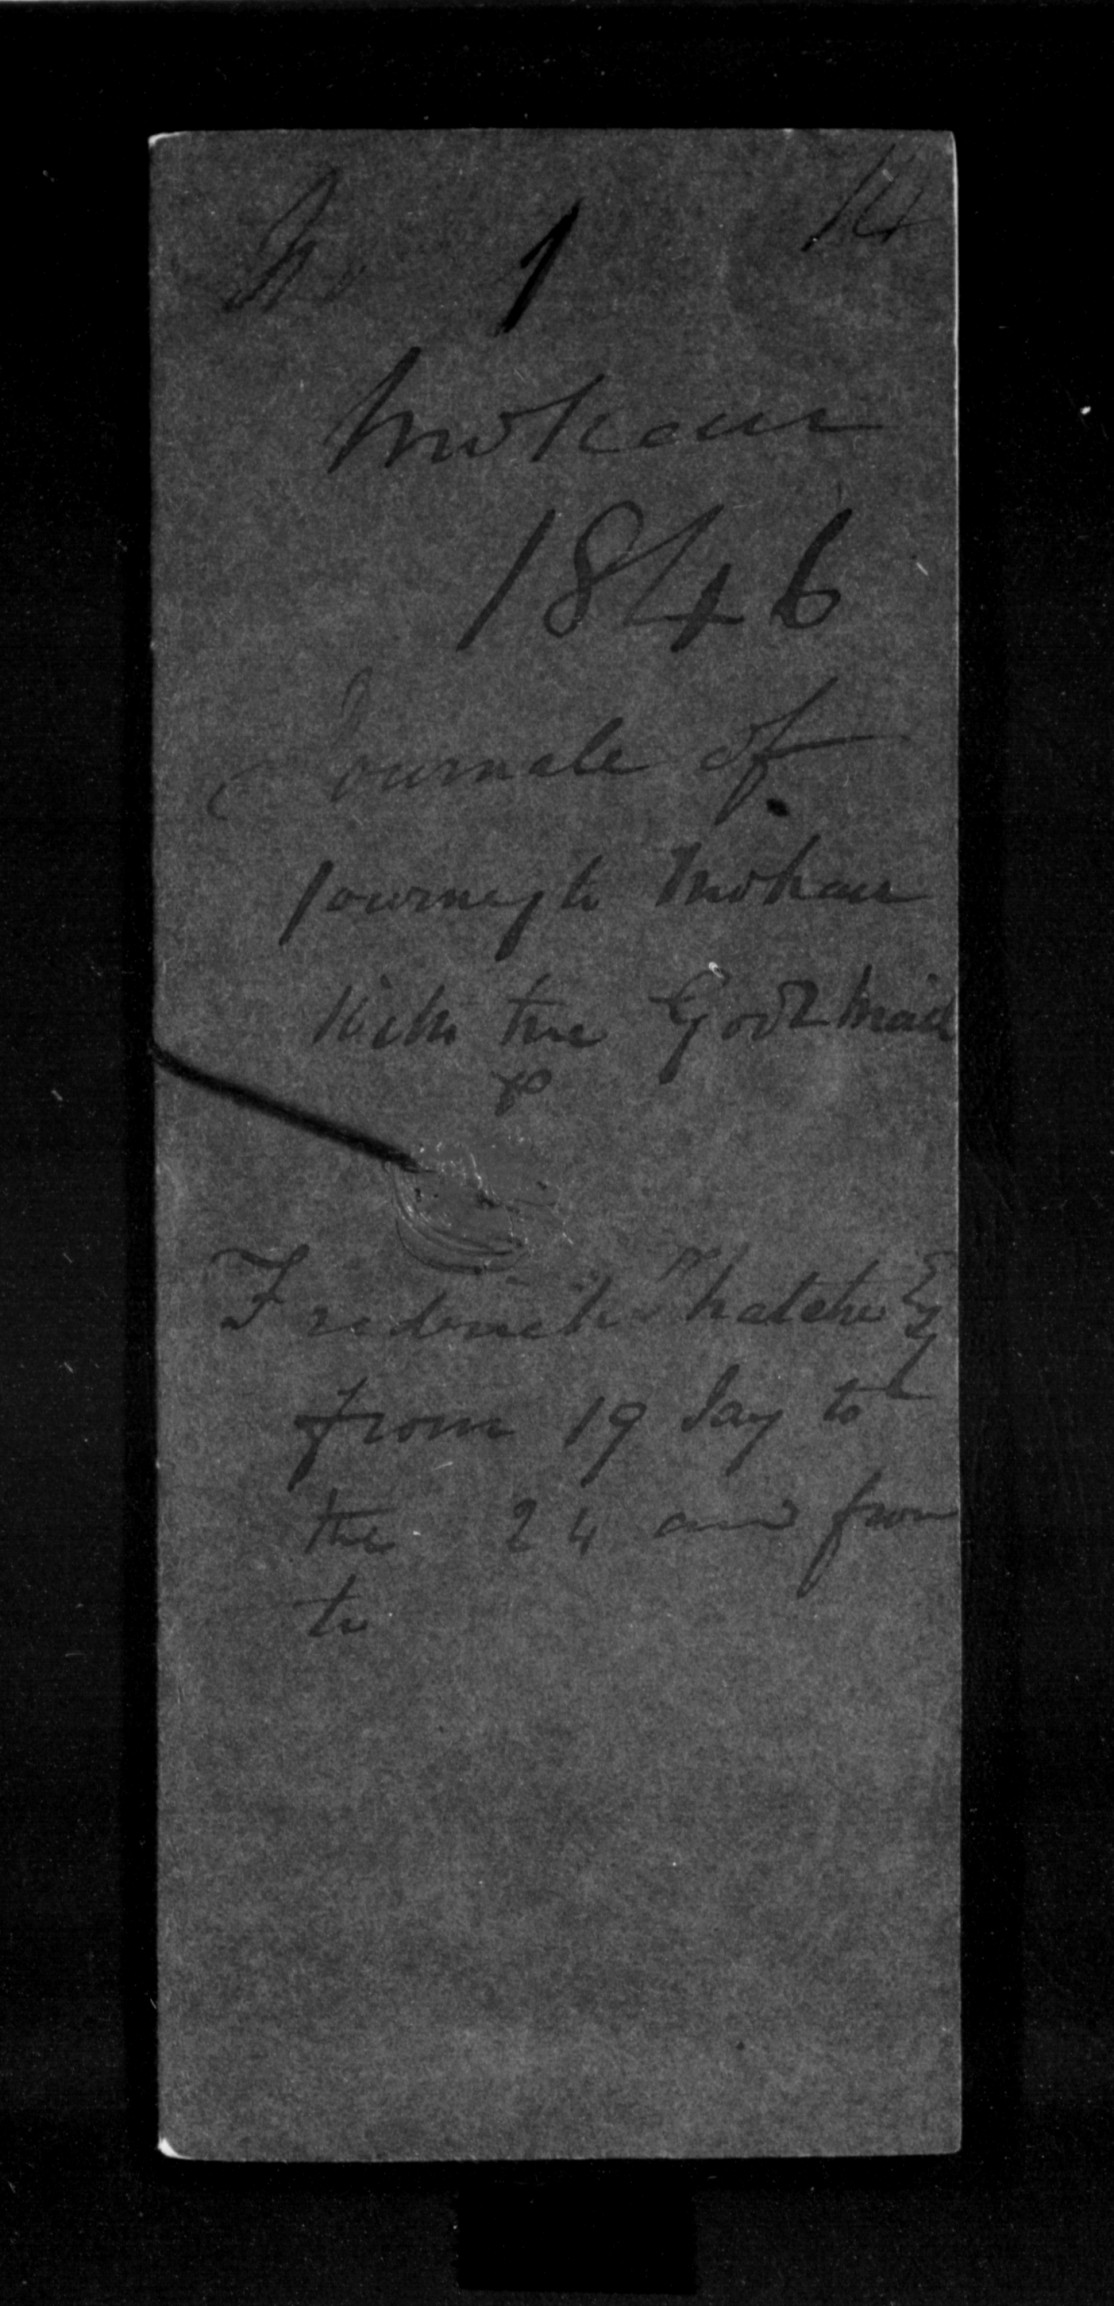 No 1 14
Mokau
1846
Journale of
Journey to Mokau
With the Govt Mail
&
Frederick Thatcher Esq
from 19 day to
the 24 and from
to